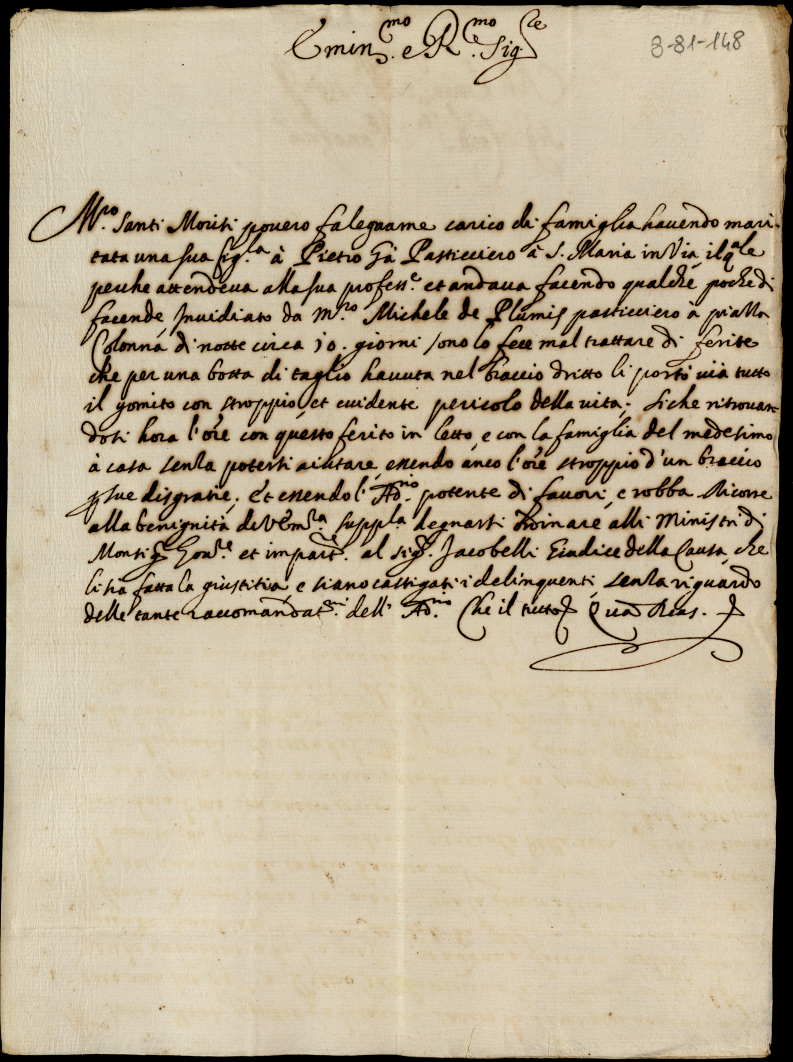 Emin.mo e R.mo Sig.re
8-81-148
M.ro Santi Moriti povero falegname carico di famiglia havendo mari-
tata una sua fig.a à Pietro Pasticciero à S. Maria in Via, il q.ale
perche attendeva alla sua profess.e et andava facendo qualche poche di
facende Invidiato da m.ro Michele de Plumis pasticciero à piazza
Colonna di notte circa 10. giorni sono lo fece mal trattare di ferite
che per una botta di taglio havuta nel braccio dritto li portò via tutto
il gomito con stroppio, et evidente pericolo della vita; Siche ritrovan-
dosi hora l'ore con questo ferito in letto, e con la famiglia del medesimo
à casa senza potersi aiutare, essendo anco l'ore stroppio d'un braccio
p sue disgratie. Et essendo l'Ad.rio potente di favori, e robba Ricorre
alla benignità di V Em.za suppl.la degnarsi Ordinare alli Ministri di
Monsig.r Gov.re et impart. al Sig.r Jacobelli Giudice della Causa, che
li sia fatta la giustitia, e siano castigati i delinquenti, senza riguardo
delle tante raccomandat.ni dell' Ad.rio Che il tutto Qua Deus.